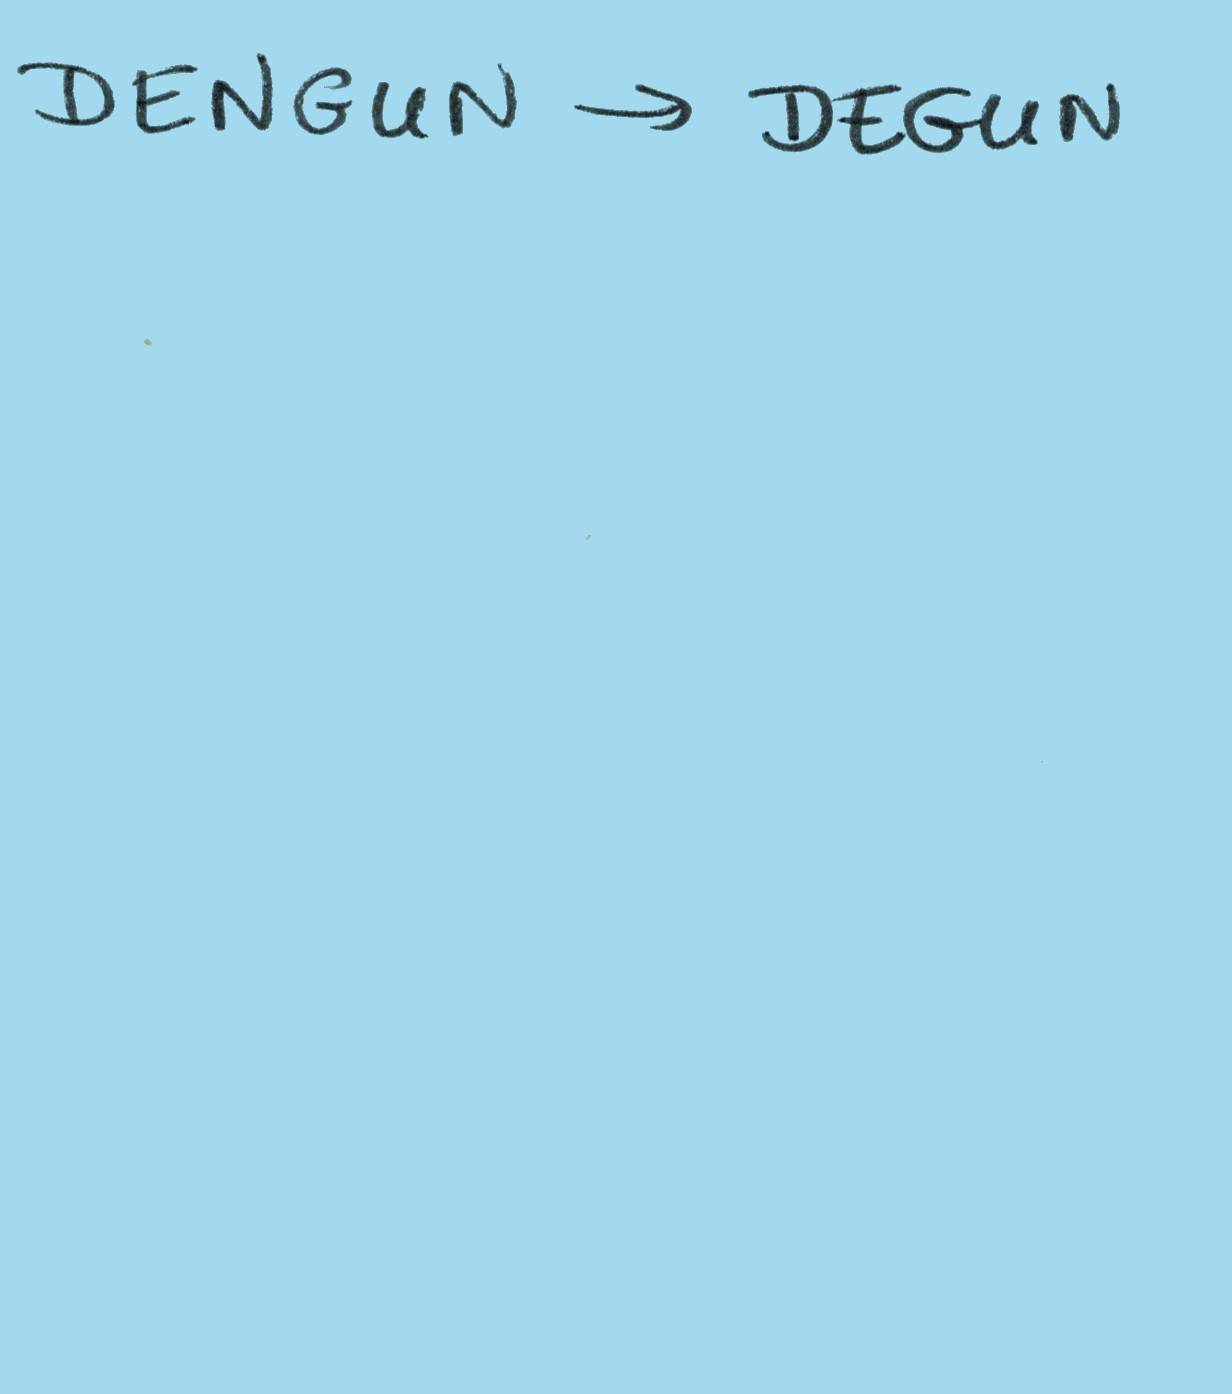 DENGUN → DEGUN